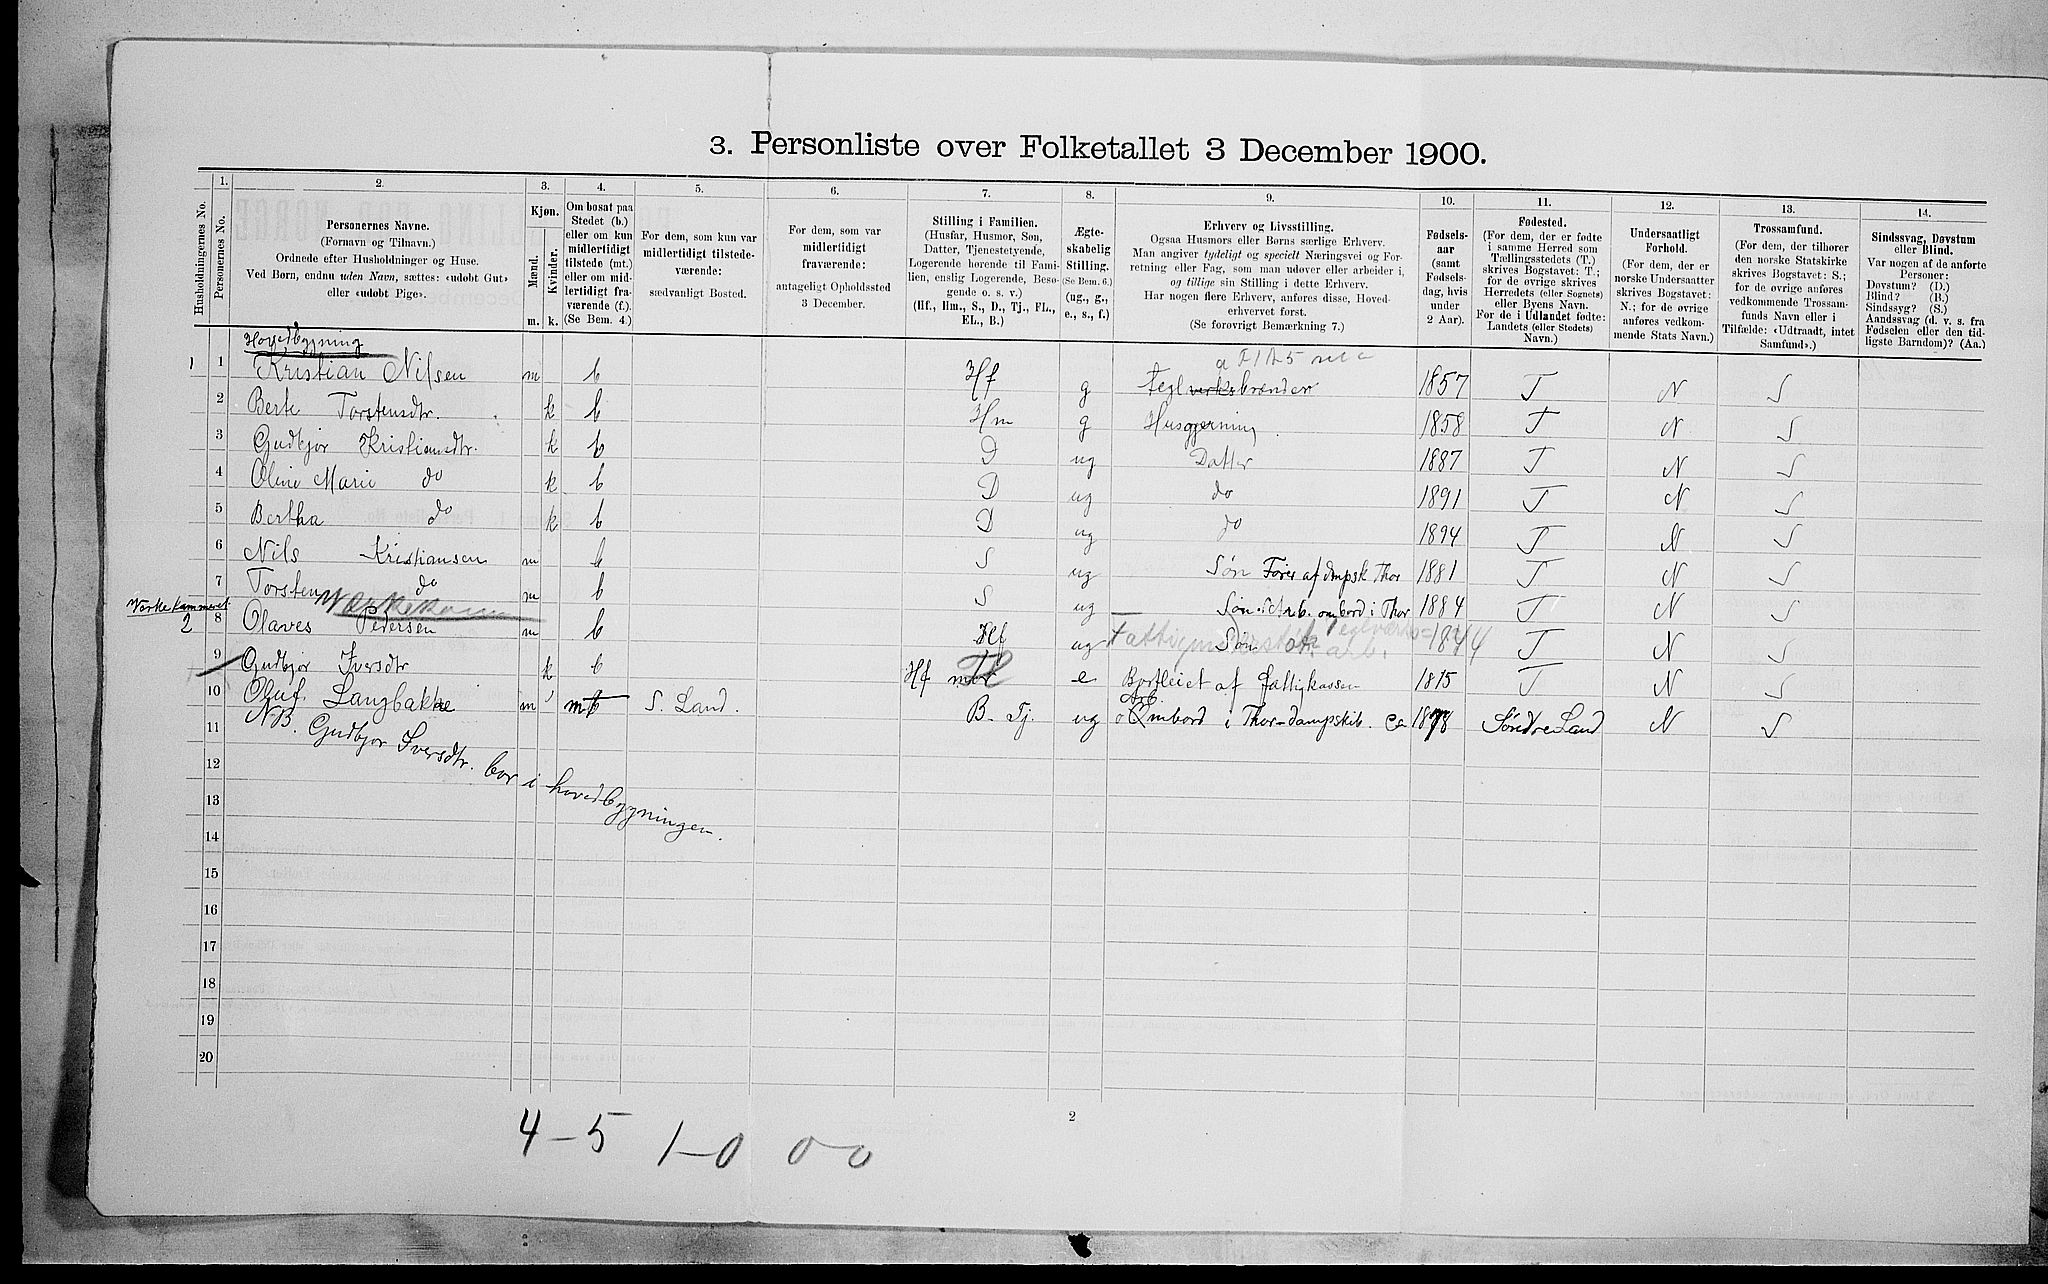 3. Personliste over Folketallet 3 December 1900.
1. 2. 3. 4. 5. 6. 7. 8. 9. 10. 11. 12. 13. 14.
Husholdningernes No.
Personernes No.
Personernes Navne.
(Fornavn og Tilnavn.)
Ordnede efter Husholdninger og Huse.
Ved Børn, endnu uden Navn, sættes: «udøbt Gut»
eller «udøbt Pige».
Kjøn.
Mænd.
Kvinder.
m. k.
Om bosat paa
Stedet (b.)
eller om kun
midlertidigt
tilstede (mt.)
eller om mid-
lertidigt fra-
værende (f.).
(Se Bem. 4.)
For dem, som kun var
midlertidigt tilstede-
værende:
sædvanligt Bosted.
For dem, som var
midlertidigt
fraværende:
antageligt Opholdssted
3 December.
Stilling i Familien.
(Husfar, Husmor, Søn,
Datter, Tjenestetyende,
Logerende hørende til Fami-
lien, enslig Logerende, Besø-
gende o. s. v.)
(Hf., Hm., S., D., Tj., FL.,
EL., B.)
Ægte-
skabelig
Stilling.
(Se Bem. 6.)
(ug., g.,
e., s., f.)
Erhverv og Livsstilling.
Ogsaa Husmors eller Børns særlige Erhverv.
Man angiver tydeligt og specielt Næringsvei og For-
retning eller Fag, som man udøver eller arbeider i,
og tillige sin Stilling i dette Erhverv.
Har nogen flere Erhverv, anføres disse, Hoved-
erhvervet først.
(Se forøvrigt Bemærkning 7.)
Fødsels-
aar
(samt
Fødsels-
dag, hvis
under
2 Aar).
Fødested.
(For dem, der er fødte
i samme Herred som
Tællingsstedets (T.)
skrives Bogstavet: T.;
for de øvrige skrives
Herredets (eller Sognets)
eller Byens Navn.
For de i Udlandet fødte:
Landets (eller Stedets)
Navn.)
Undersaatligt
Forhold.
(For dem, der er
norske Undersaatter
skrives Bogstavet:
N.; for de øvrige
anføres vedkom-
mende Stats Navn.)
Trossamfund.
(For dem, der tilhører
den norske Statskirke
skrives Bogstavet: S.;
for de øvrige anføres
vedkommende Trossam-
funds Navn eller i
Tilfælde: «Udtraadt, intet
Samfund».)
Sindssvag, Døvstum
eller Blind.
Var nogen af de anførte
Personer:
Døvstum? (D.)
Blind? (B.)
Sindssyg? (S.)
Aandssvag (d. v. s. fra
Fødselen eller den tid-
ligste Barndom)? (Aa.)
Hovedbygning
1 1 Kristian Nilsen m b Hf g Teglverksbrænder 1857 T N S
2 Berte Torstensdtr. k b Hm g Husgjerning 1858 T N S
3 Gudbjør Kristiansdtr. k b D ug Datter 1887 T N S
4 Oline Marie do k b D ug do 1891 T N S
5 Bertha do k b D ug do 1894 T N S
6 Nils Kristiansen m b S ug Søn Fører af dampsk Thor 1881 T N S
7 Torsten do m b S ug Søn arb. ombord i Thor 1884 T N S
2 8 Olaves Pedersen m b Hf ug Fattigunderstøt. Teglværks arb. 1844 T N S
9 Gudbjør Iversdtr k b e Bortleiet af fattigkassen 1815 T N S
10 Oluf. Langbakke m mt S. Land. B. Tj. ug Ombord i Thor-dampskib. ca 1878 Søndre Land N S
11 NB. Gudbjør Iversdtr. bor i hovedbygningen.
12
13
14
15
16
17
18
19
20
2
4-5 1-0 0-0